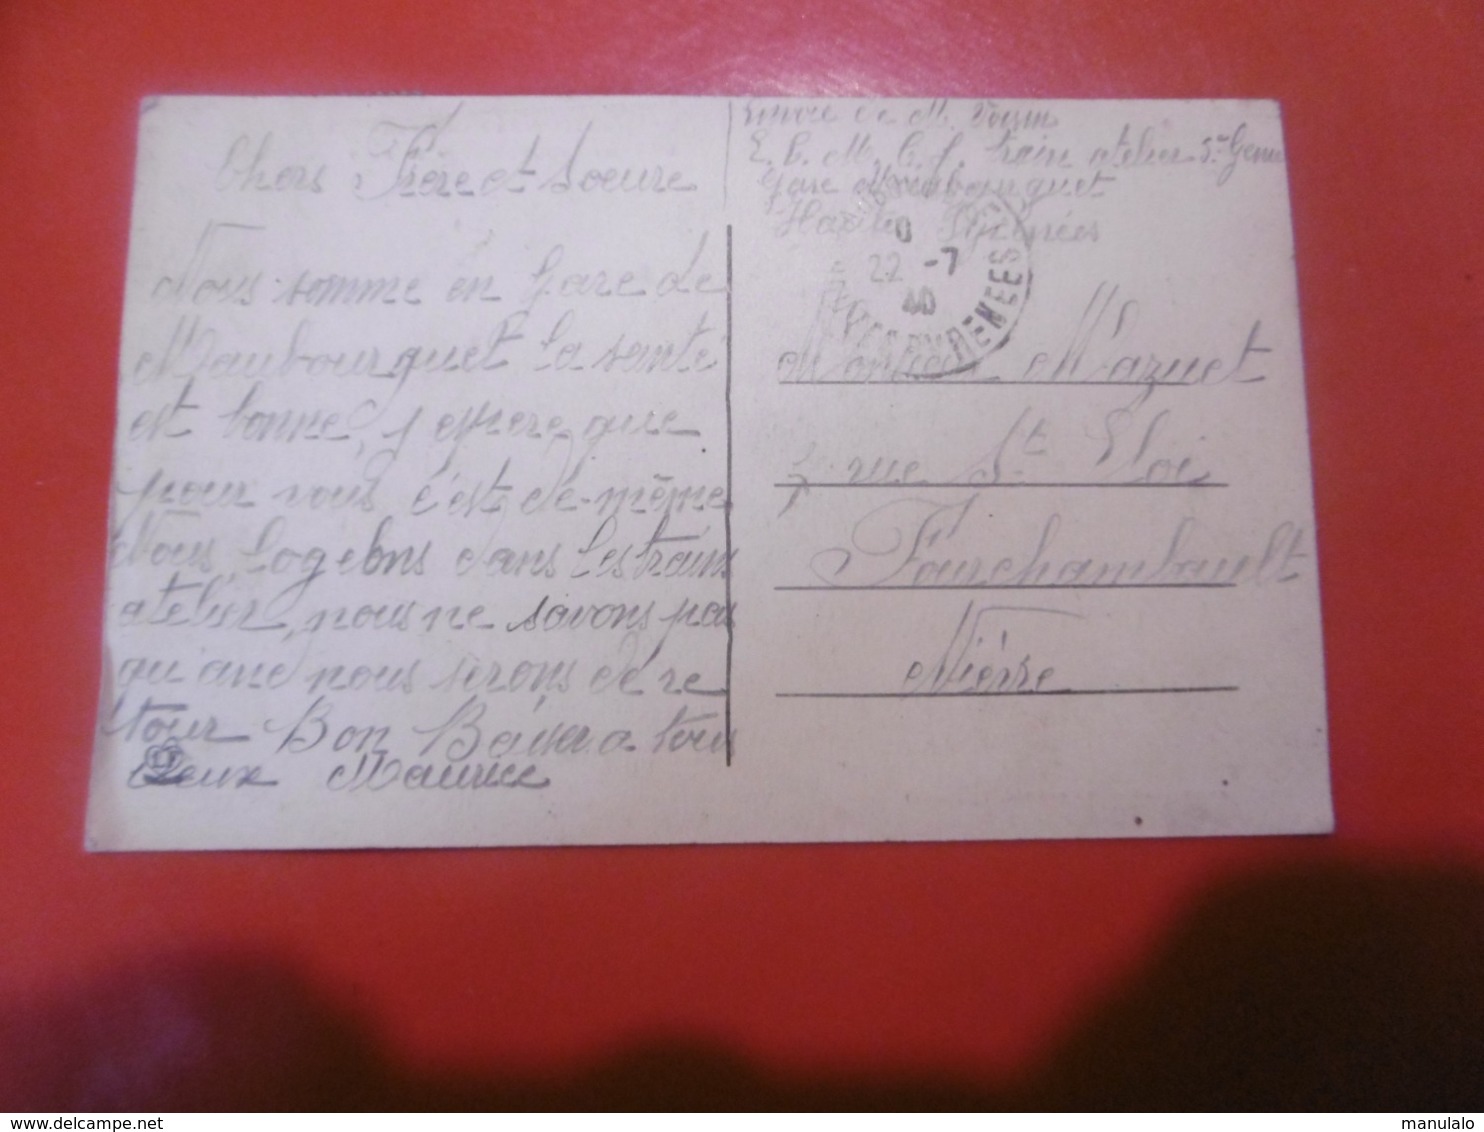 Chers Frère et Soeure
Nous somme en Gare de
Maubourguet la senté
est bonne, j espere que
pour vous c'est de-même
Nous logeons dans les trains
atelier, nous ne savons pas
quand nous serons de re
tour Bon Baiser a tous
deux Maurice
de M.
E. C. M. C. f. train atelier
Gare Maubourguet
Hautes Pyrenées
22 -7
40
PYRÉNÉES
Mazuet
rue St Eloi
Fourchambault
Nièvre
delcampe.net
manulalo